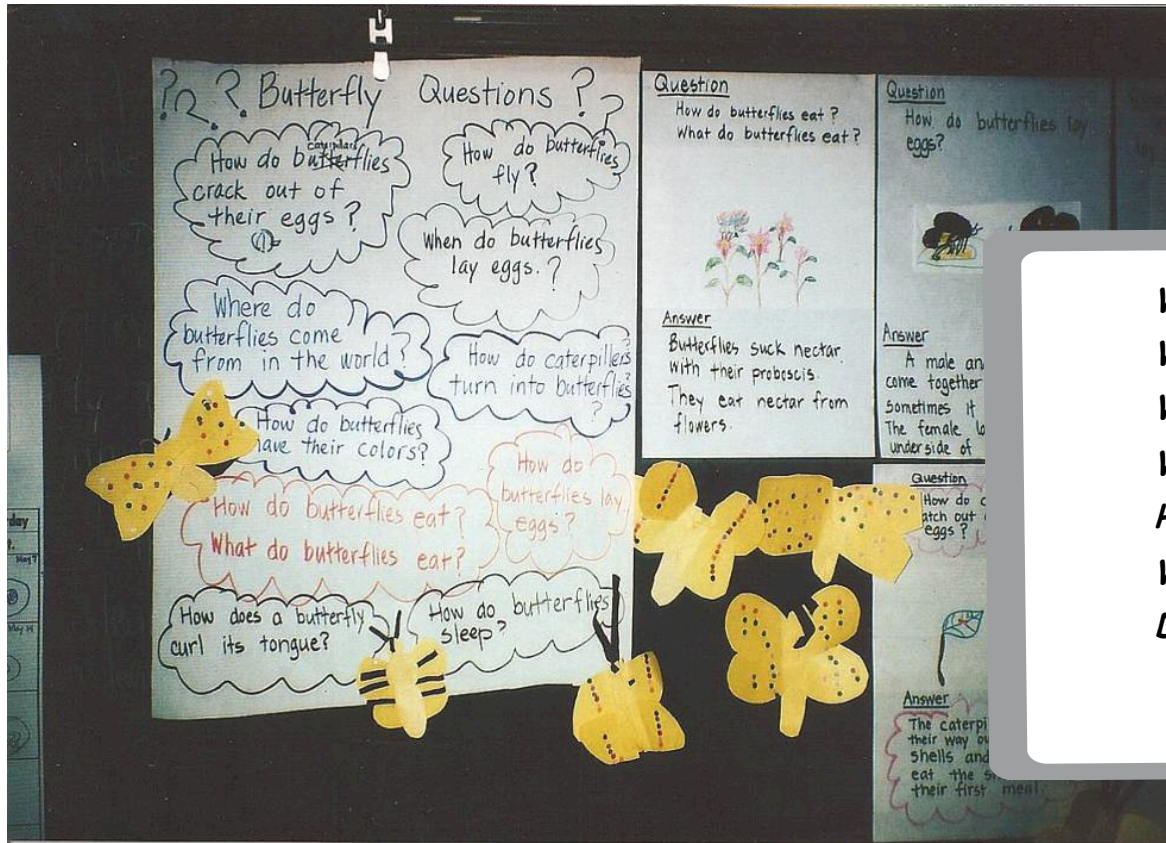 ??? Butterfly Questions ??
How do butterflies
caterpillars
crack out of
their eggs?
How do butterflies
fly?
When do butterflies
lay eggs.?
Where do
butterflies come
from in the world?
How do caterpillers
turn into butterflies?
?
How do butterflies
have their colors?
How do
butterflies lay
eggs?
How do butterflies eat?
What do butterflies eat?
How does a butterfly
curl its tongue?
How do butterflies
sleep?
Question
How do butterflies eat?
What do butterflies eat?
Answer
Butterflies suck nectar
with their proboscis.
They eat nectar from
flowers.
Question
How do butterflies lay
eggs?
Answer
A male an
come together
sometimes it
The female
underside of
Question
How do
atch out
eggs?
Answer
The caterpi
their way ou
shells and
eat the
their first meal.
day
May 7
May 14